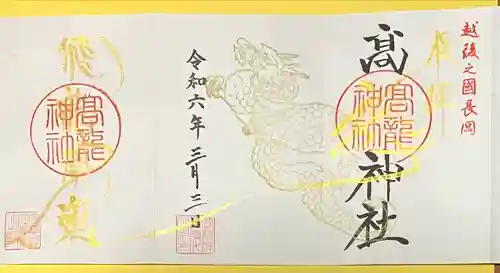 越後之國長岡
奉拝
髙 神社
髙龍
神社
令和六年三月三日
髙龍
神社